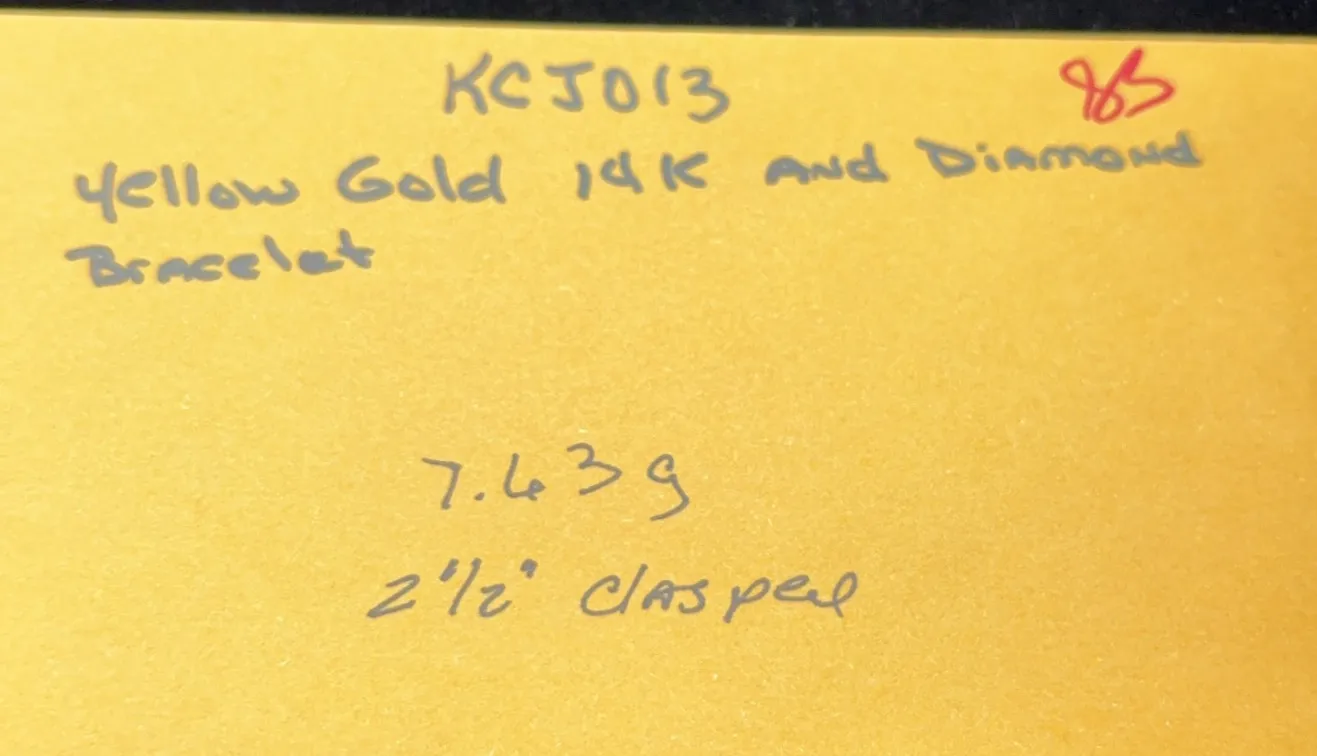 KCJ013 85
Yellow Gold 14K AND DiAMOND
BrAcelet
7.63 g
2 1/2" clAsped